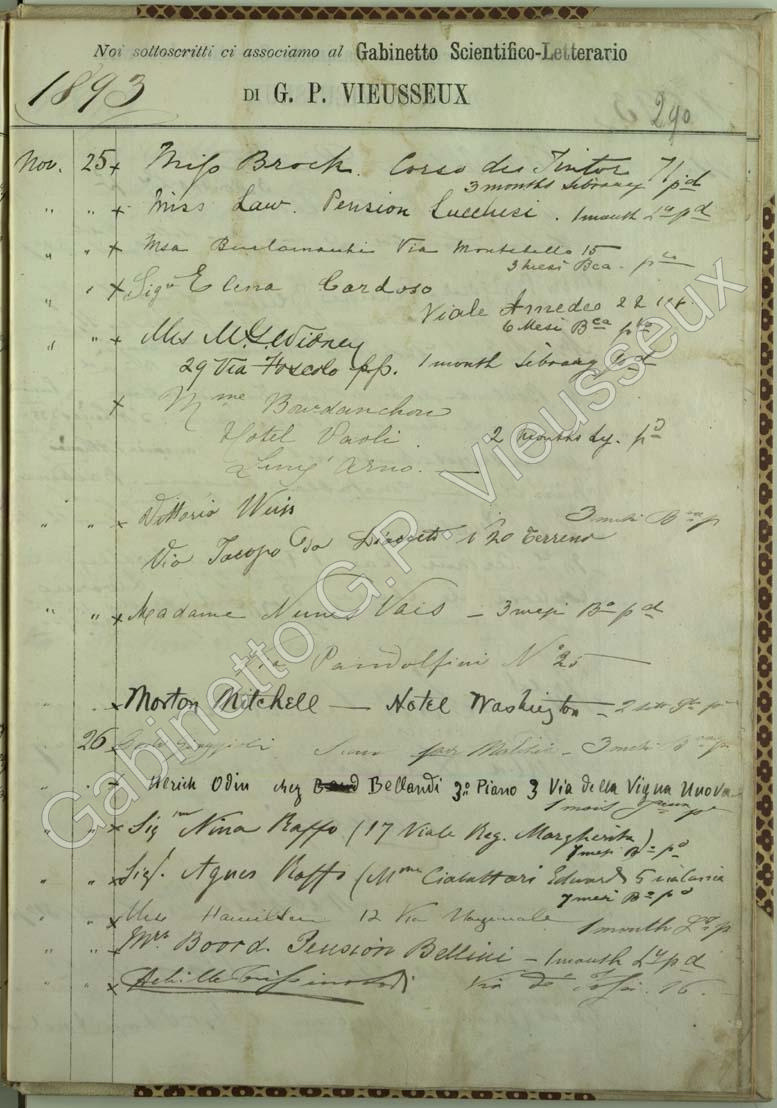 Noi sottoscritti ci associamo al Gabinetto Scientifico-Letterario
1893 DI G. P. VIEUSSEUX
290
Nov. 25 x Miss Brock. Corso dei Tintori 71
3 months Library pd
" " x Miss Law. Pension Lucchesi. 1 month Ly pd
" " x Via Montebello 15
3 mesi Bca.
" " x Siga Elena Cardoso
Viale Amedeo 22
6 Mesi Bca
" " x
29 Via Foscolo pp. 1 month Library pd
x Mme
Hotel Paoli. 2 months Ly. pd
Lung' Arno.
" " x Vittorio Weiss 3 mesi
Via Jacopo da Diacceto N 20 Terreno
" " x Madame Nunes Vais - 3 mesi Ba pd
Via Pandolfini No 25
x Morton Mitchell — Hotel Washington - 2
26 x 3 mesi
" " x Ulrich Odin chez Bellandi 3o Piano 3 Via della Vigna Nuova
1 mois
" " x Sigina Nina Raffo (17 Viale Reg. Margherita)
7 mesi Ba pd
" " x Siga. Agnes Raffo (Mme
7 mesi Ba pd
" " x Miss Hamilton 12 Via Nazionale
1 month
" " x Mrs Boord. Pension Bellini - 1 month Ly pd
" " x Achille Via 16.
Gabinetto G.P. Vieusseux